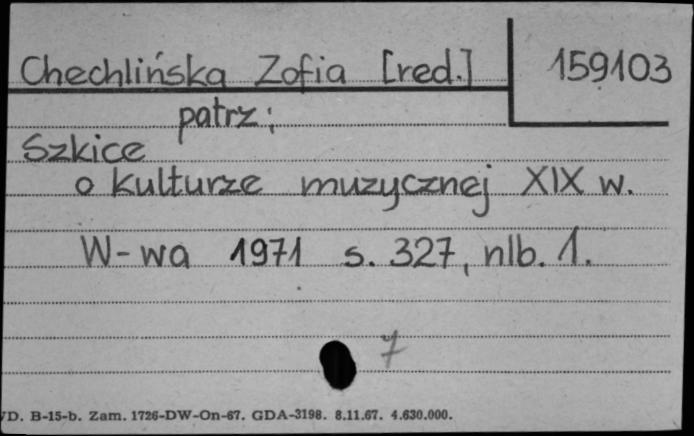 Chechlińska Zofia [red.] 159103
patrz:
Szkice
o kulturze muzycznej XIX w.
W-wa 1971 s. 327, nlb. 1.
7
D. B-15-b. Zam. 1726-DW-On-67. GDA-3198. 8.11.67. 4.630.000.